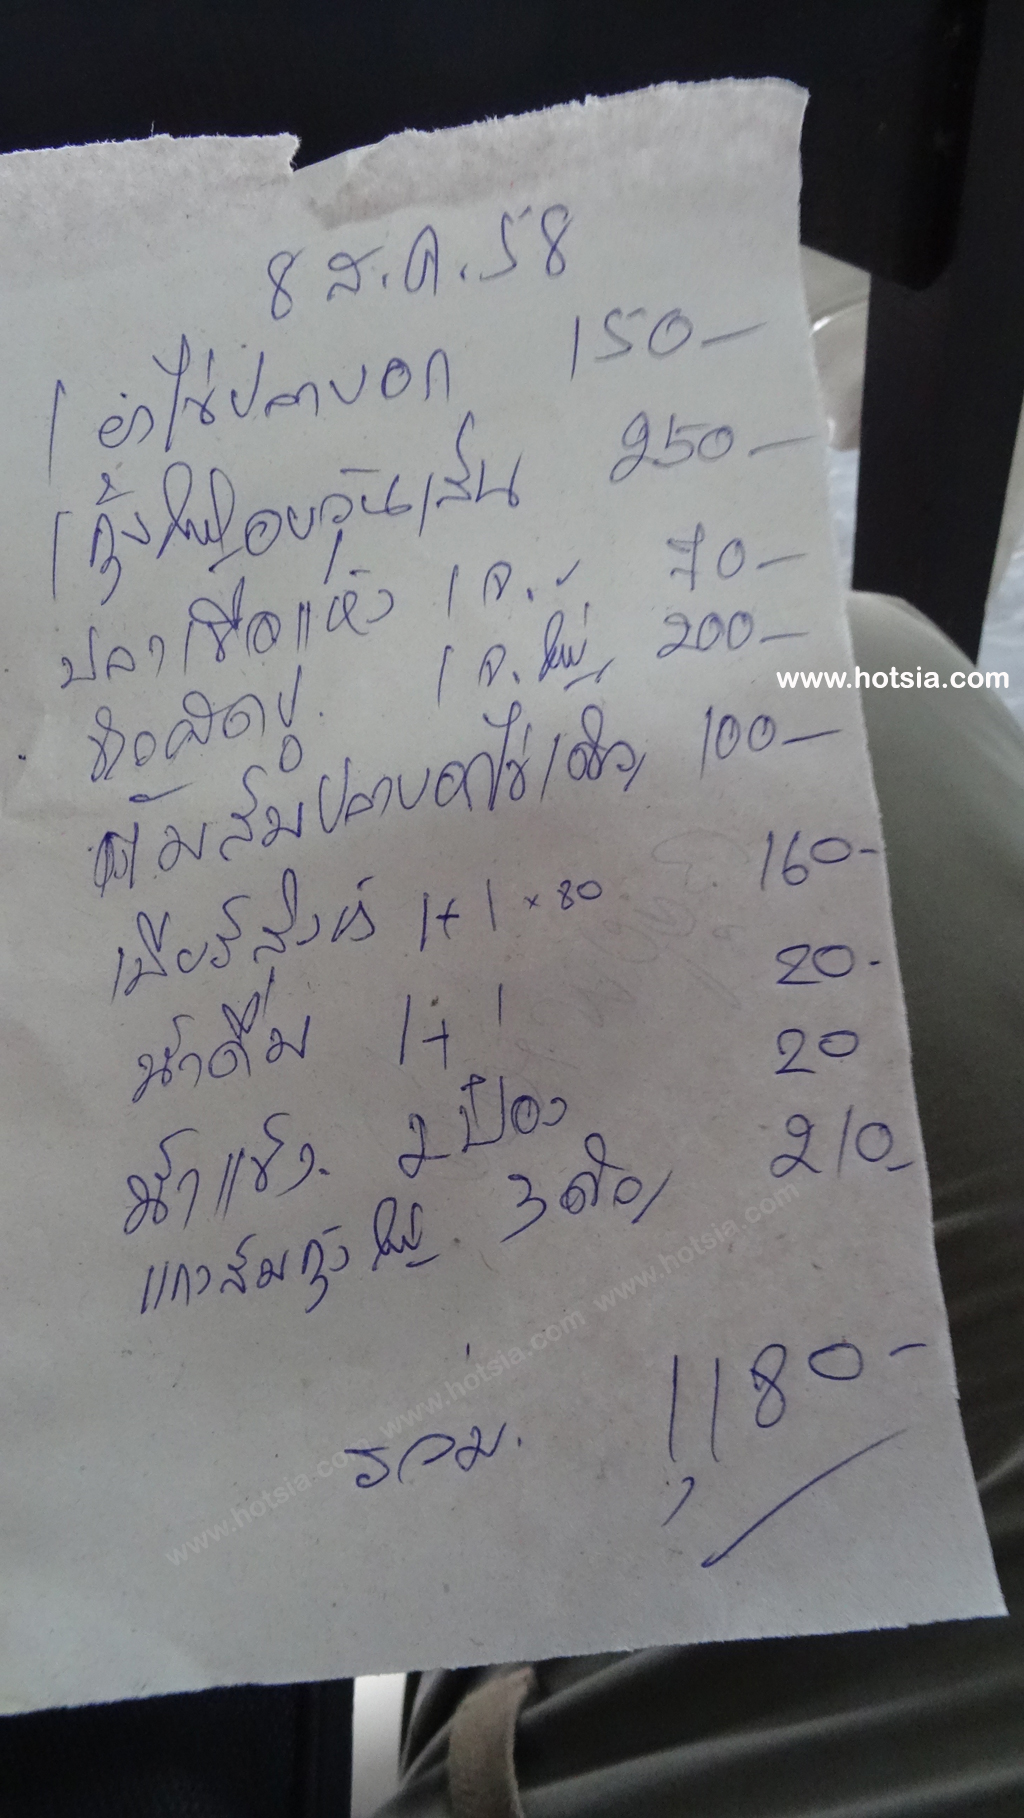 8 ส.ค. 58
1 ยำไข่ปลาบอก 150-
1 กุ้งใหญ่อบวุ้นเส้น 250-
ปลาเชื่อแห้ง 1 จ. 70-
ข้าวผัดปู. 1 จ.ใหญ่ 200-
ต้มส้มปลาบอกไข่เดี่ยว 100-
เบียร์สิงห์ 1+1 × 80 160-
น้ำดื่ม 1+1 20-
น้ำแข็ง. 2 ป๋อง 20
แกงส้มกุ้งใหญ่. 3 ตัว 210
รวม. 1,180-
www.hotsia.com
www.hotsia.com www.hotsia.com www.hotsia.com